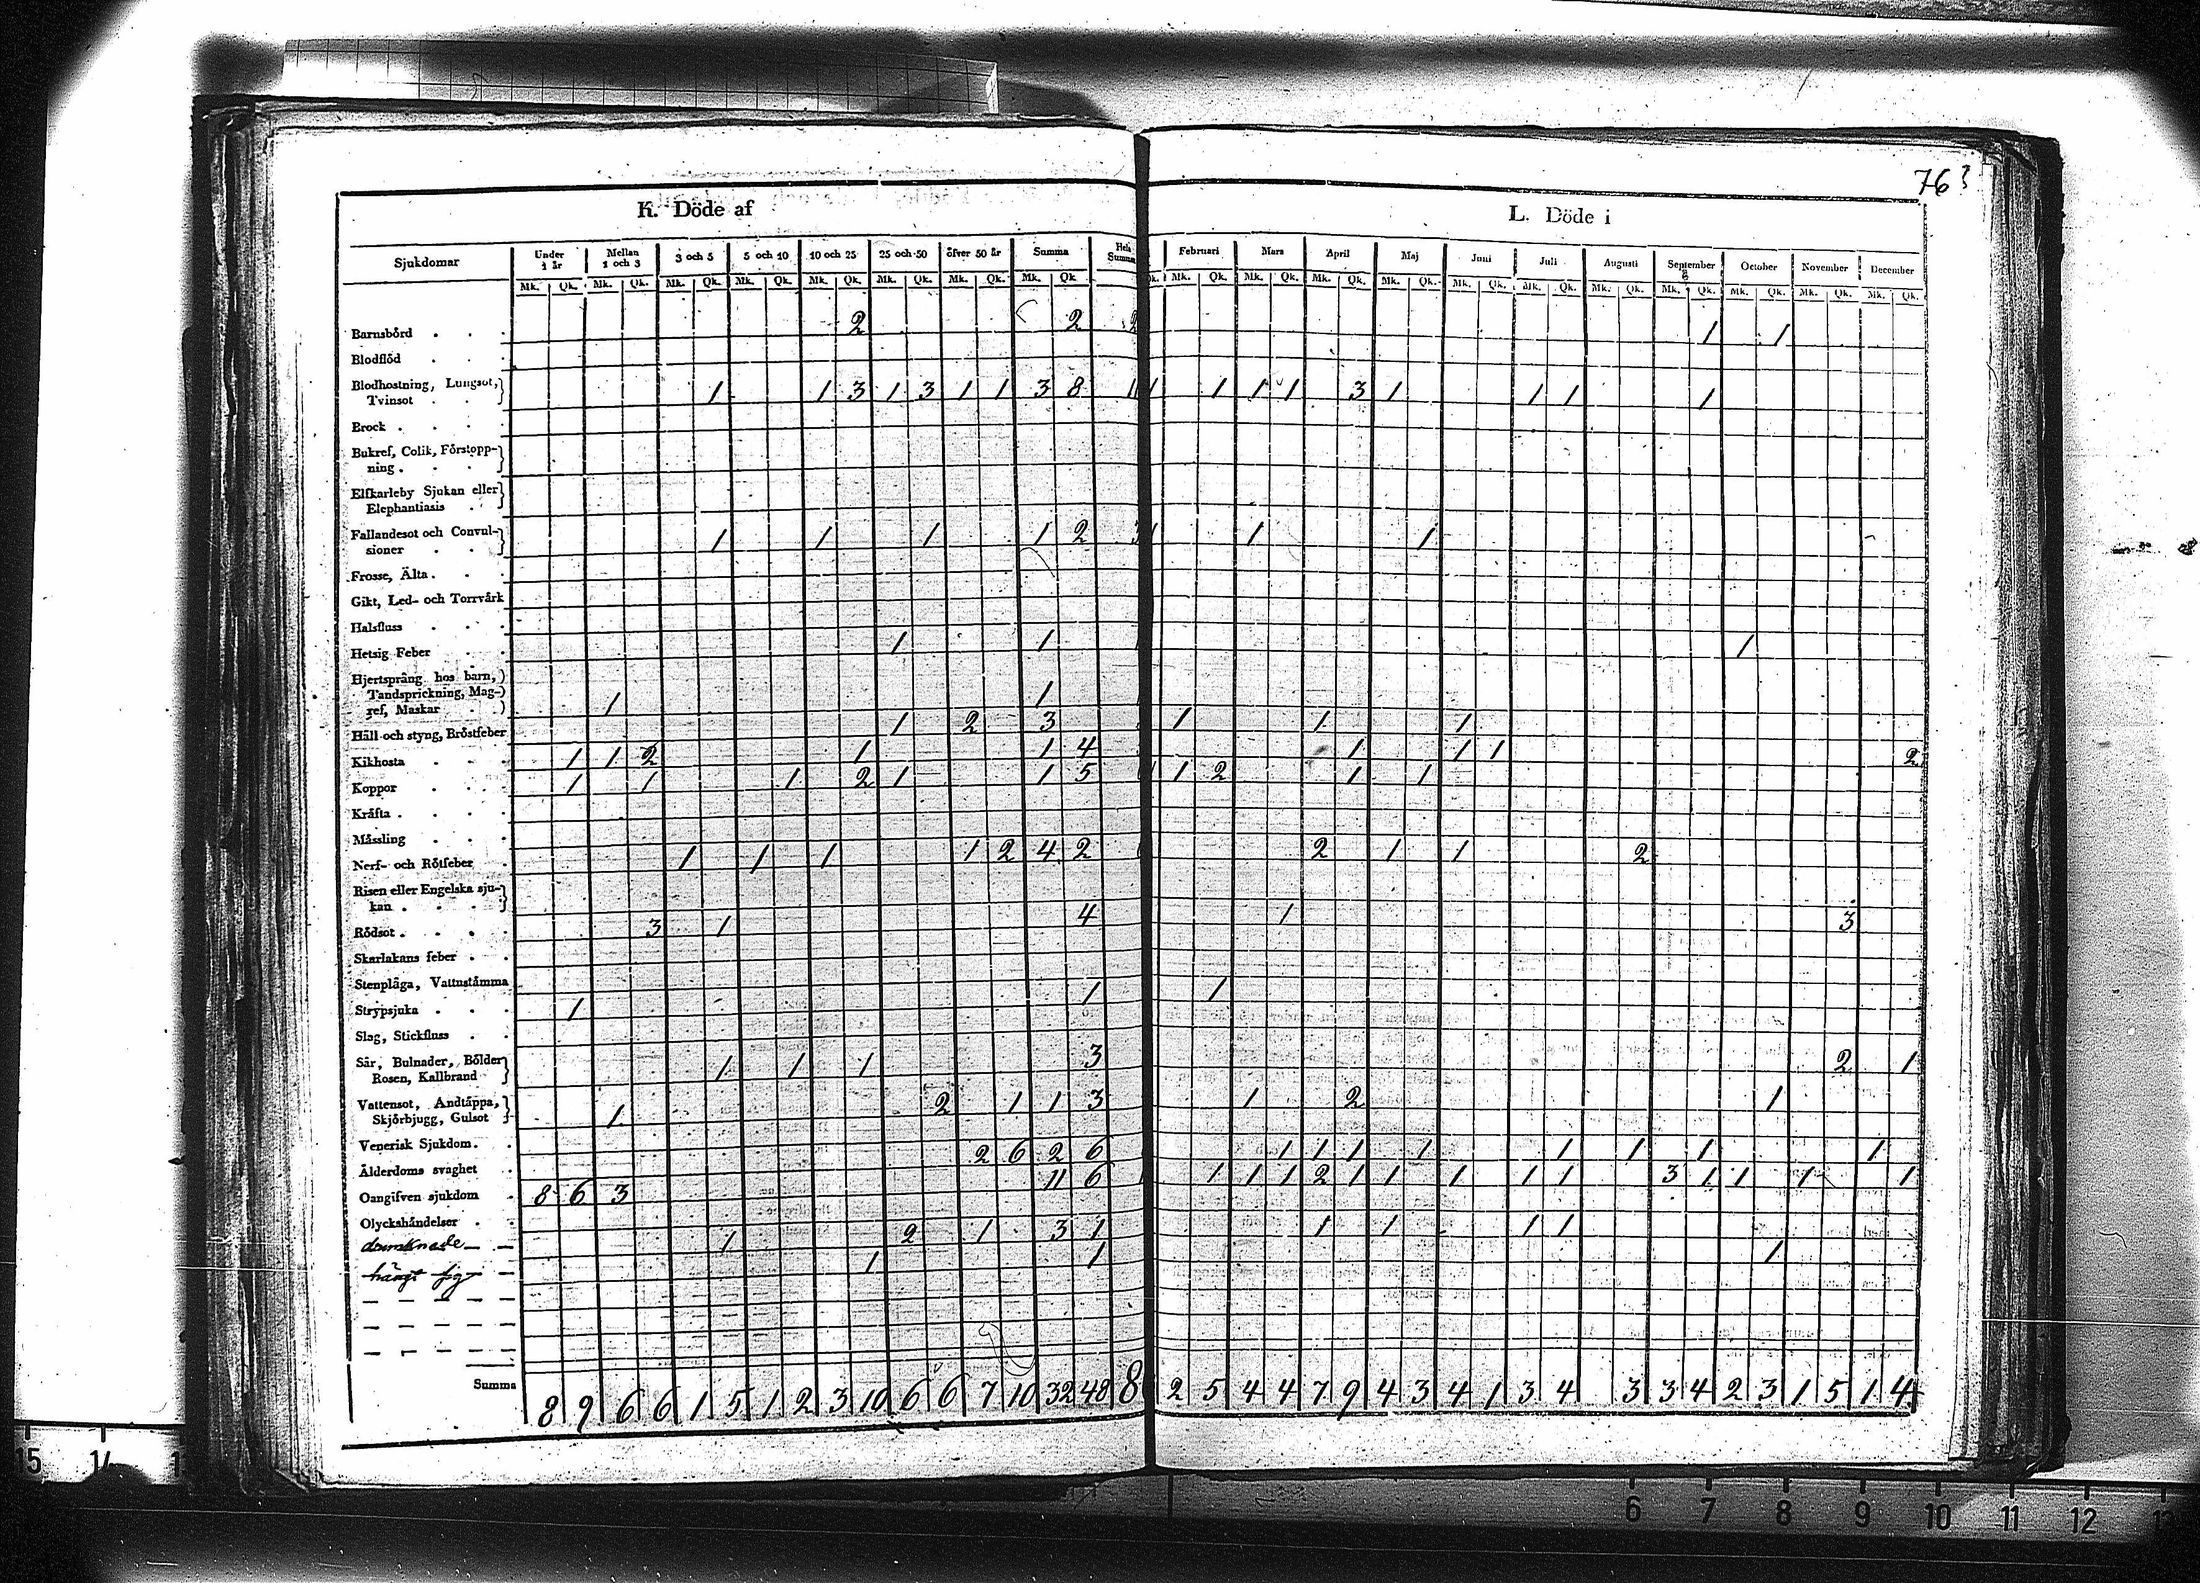 763
K. Döde af
L. Döde i
Sjukdomar Under 1 år Mellan 1 och 3 3 och 5 5 och 10 10 och 25 25 och 50 öfver 50 år Summa Hela Summa Februari Mars April Maj Juni Juli Augusti September October November December
Mk. Qk. Mk. Qk. Mk. Qk. Mk. Qk. Mk. Qk. Mk. Qk. Mk. Qk. Mk. Qk. Mk. Qk. Mk. Qk. Mk. Qk. Mk. Qk. Mk. Qk. Mk. Qk. Mk. Qk. Mk. Qk. Mk. Qk. Mk. Qk. Mk. Qk.
Barnsbörd 2 2 2 1 1
Blodflöd
Blodhostning, Lungsot,
Tvinsot 1 1 3 1 3 1 1 3 8 11 1 1 1 1 3 1 1 1 1
Brock
Bukref, Colik, Förstopp-
ning
Elfkarleby Sjukan eller
Elephantiasis
Fallandesot och Convul-
sioner 1 1 1 1 2 3 1 1 1
Frosse, Älta
Gikt, Led- och Torrvärk
Halsfluss
Hetsig Feber 1 1 1
Hjertsprång hos barn,
Tandsprickning, Mag-
ref, Maskar 1 1
Håll och styng, Bröstfeber 1 2 3 1 1 1
Kikhosta 1 1 2 1 1 4 1 1 1 2
Koppor 1 1 1 2 1 1 5 6 1 2 1 1
Kräfta
Mässling
Nerf- och Rötfeber 1 1 1 1 2 4 2 2 1 1 2
Risen eller Engelska sju-
kan
Rödsot 3 1 4 1 3
Skarlakans feber
Stenplåga, Vattnstämma
Strypsjuka 1 1 1
Slag, Stickfluss
Sår, Bulnader, Bölder
Rosen, Kallbrand 1 1 1 3 2 1
Vattensot, Andtäppa,
Skjörbjugg, Gulsot 1 2 1 1 3 1 2 1
Venerisk Sjukdom
Ålderdoms svaghet 2 6 2 6 1 1 1 1 1 1 1 1
Oangifven sjukdom 8 6 3 11 6 1 1 1 1 2 1 1 1 1 1 3 1 1 1 1
Olyckshändelser
drunknade 1 2 1 3 1 1 1 1 1
hängt sig 1 1 1
Summa 8 9 6 6 1 5 1 2 3 10 6 6 7 10 32 48 8 2 5 4 4 7 9 4 3 4 1 3 4 3 3 4 2 3 1 5 1 4
15 14 6 7 8 9 10 11 12